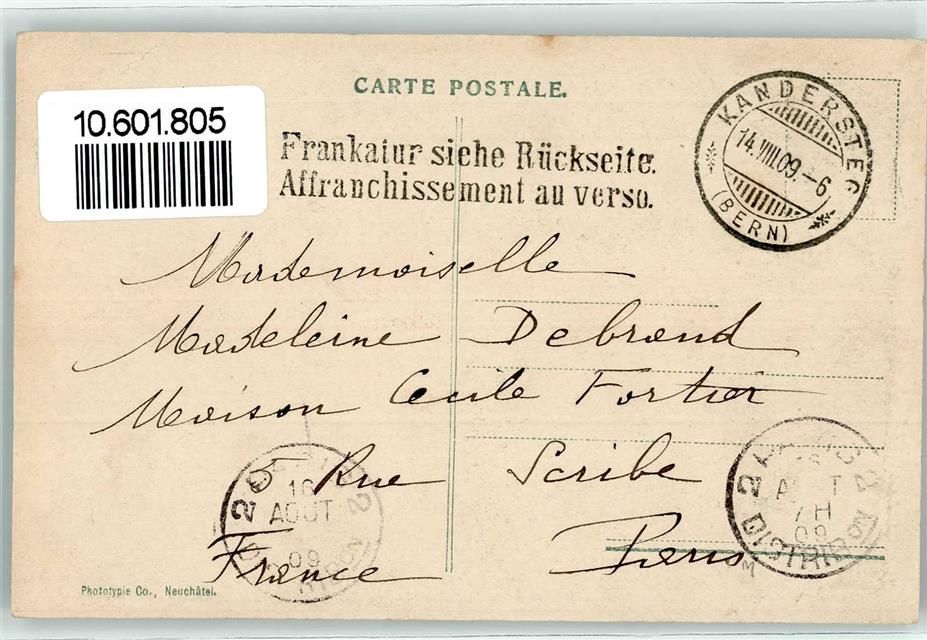 CARTE POSTALE.
10.601.805
Frankatur siehe Rückseite.
Affranchissement au verso.
KANDERSTEG
14.VIII.09-6
(BERN)
Mademoiselle
Madeleine Debrand
Maison Cecile Fortier
5 Rue Scribe
Paris
France
16
AOUT
09
2 2
AOUT
7H
09
DISTRIBON
Phototypie Co., Neuchâtel.